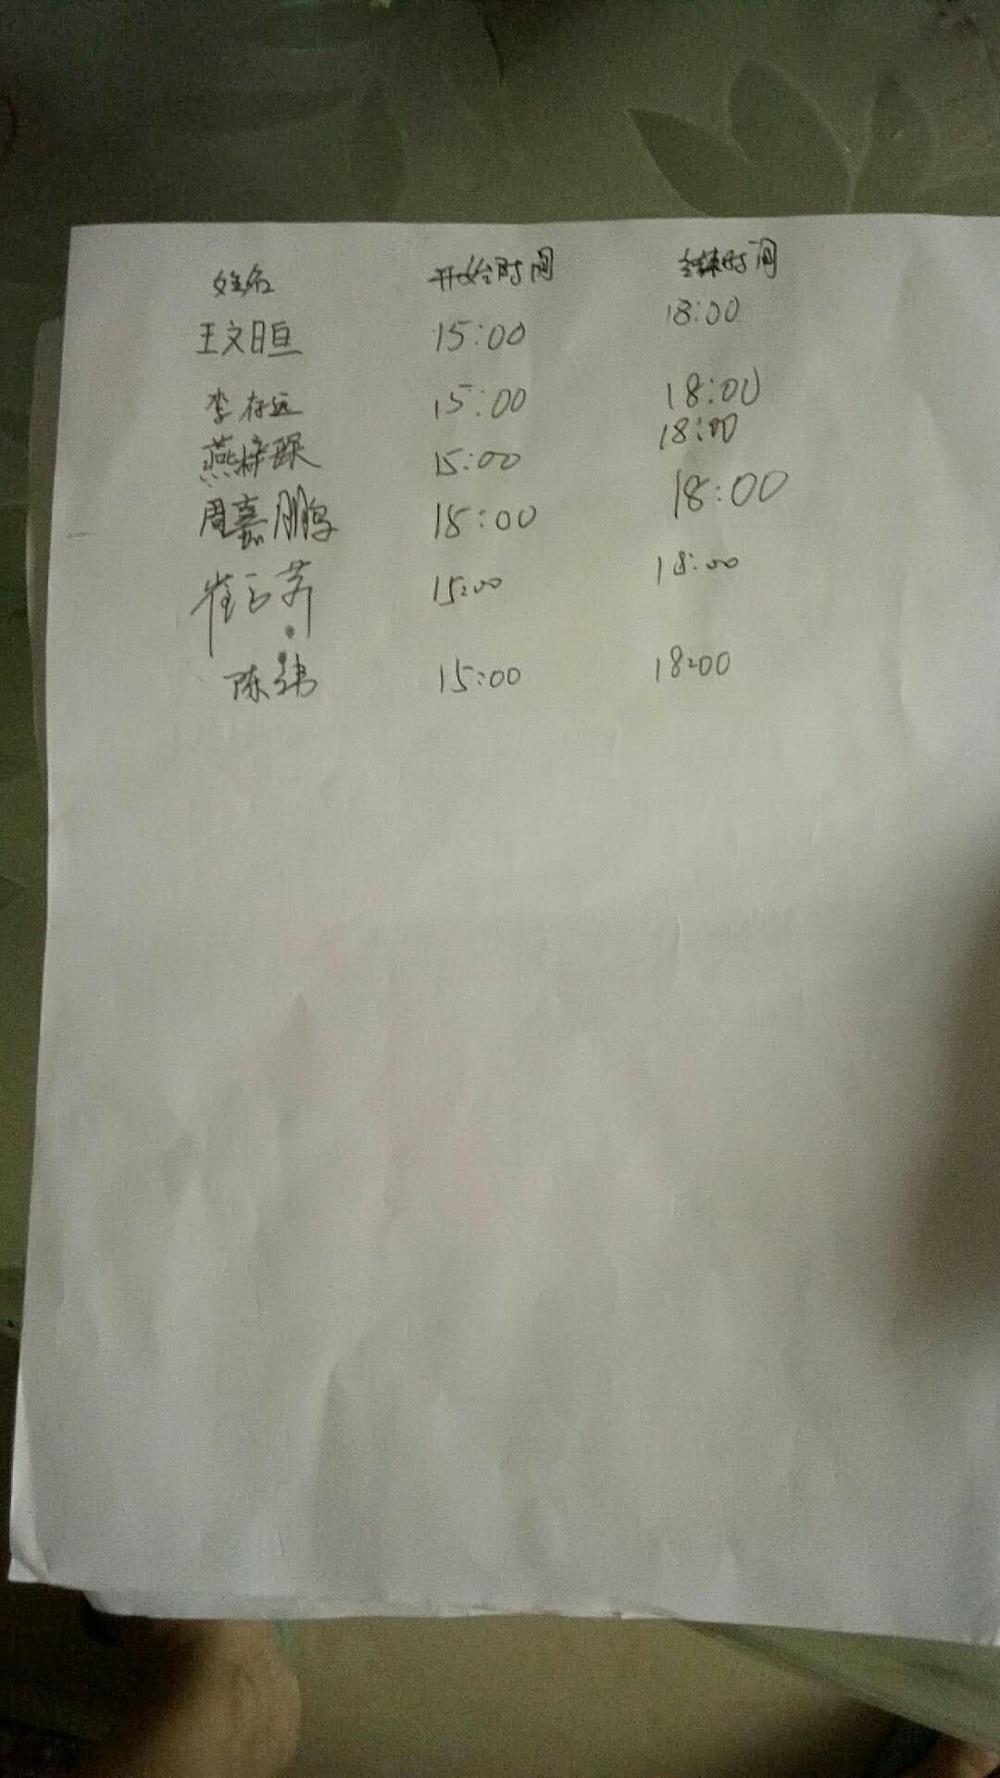 姓名 开始时间 结束时间
王文晅 15:00 18:00
李存远 15:00 18:00
燕梓 15:00 18:00
周嘉鹏 15:00 18:00
崔 15:00 18:00
陈纬 15:00 18:00